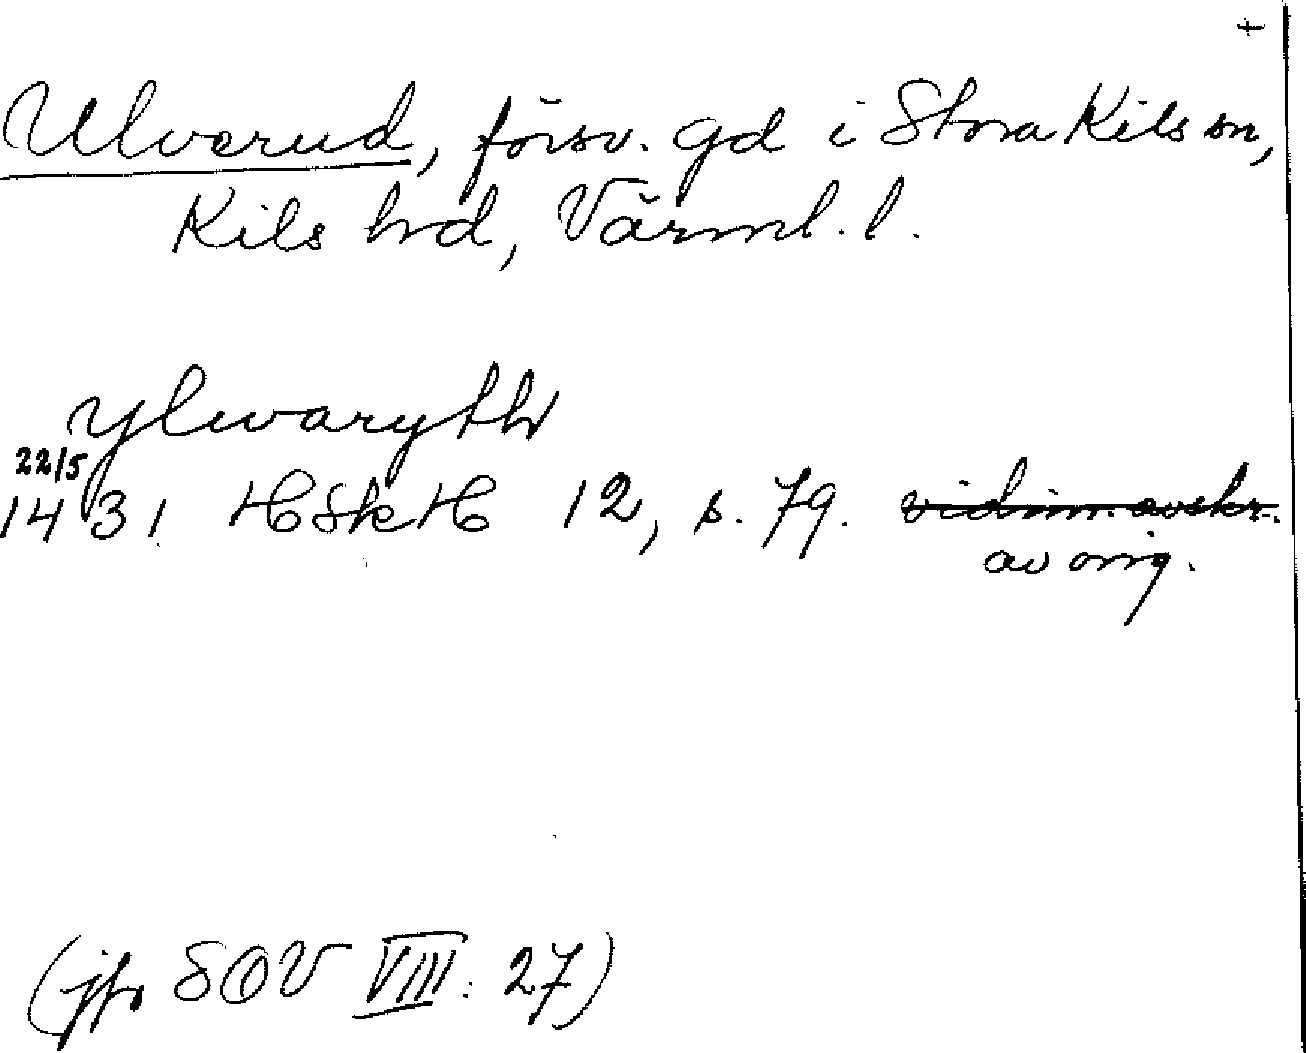 +
Ulverud, försv. gd i Stora Kils sn,
Kils hd, Värml. l.
ylwaryth
22/5
1431 HSkH 12, s. 79. vidim. avskr.
av orig.
(jfr SOV VIII: 27)